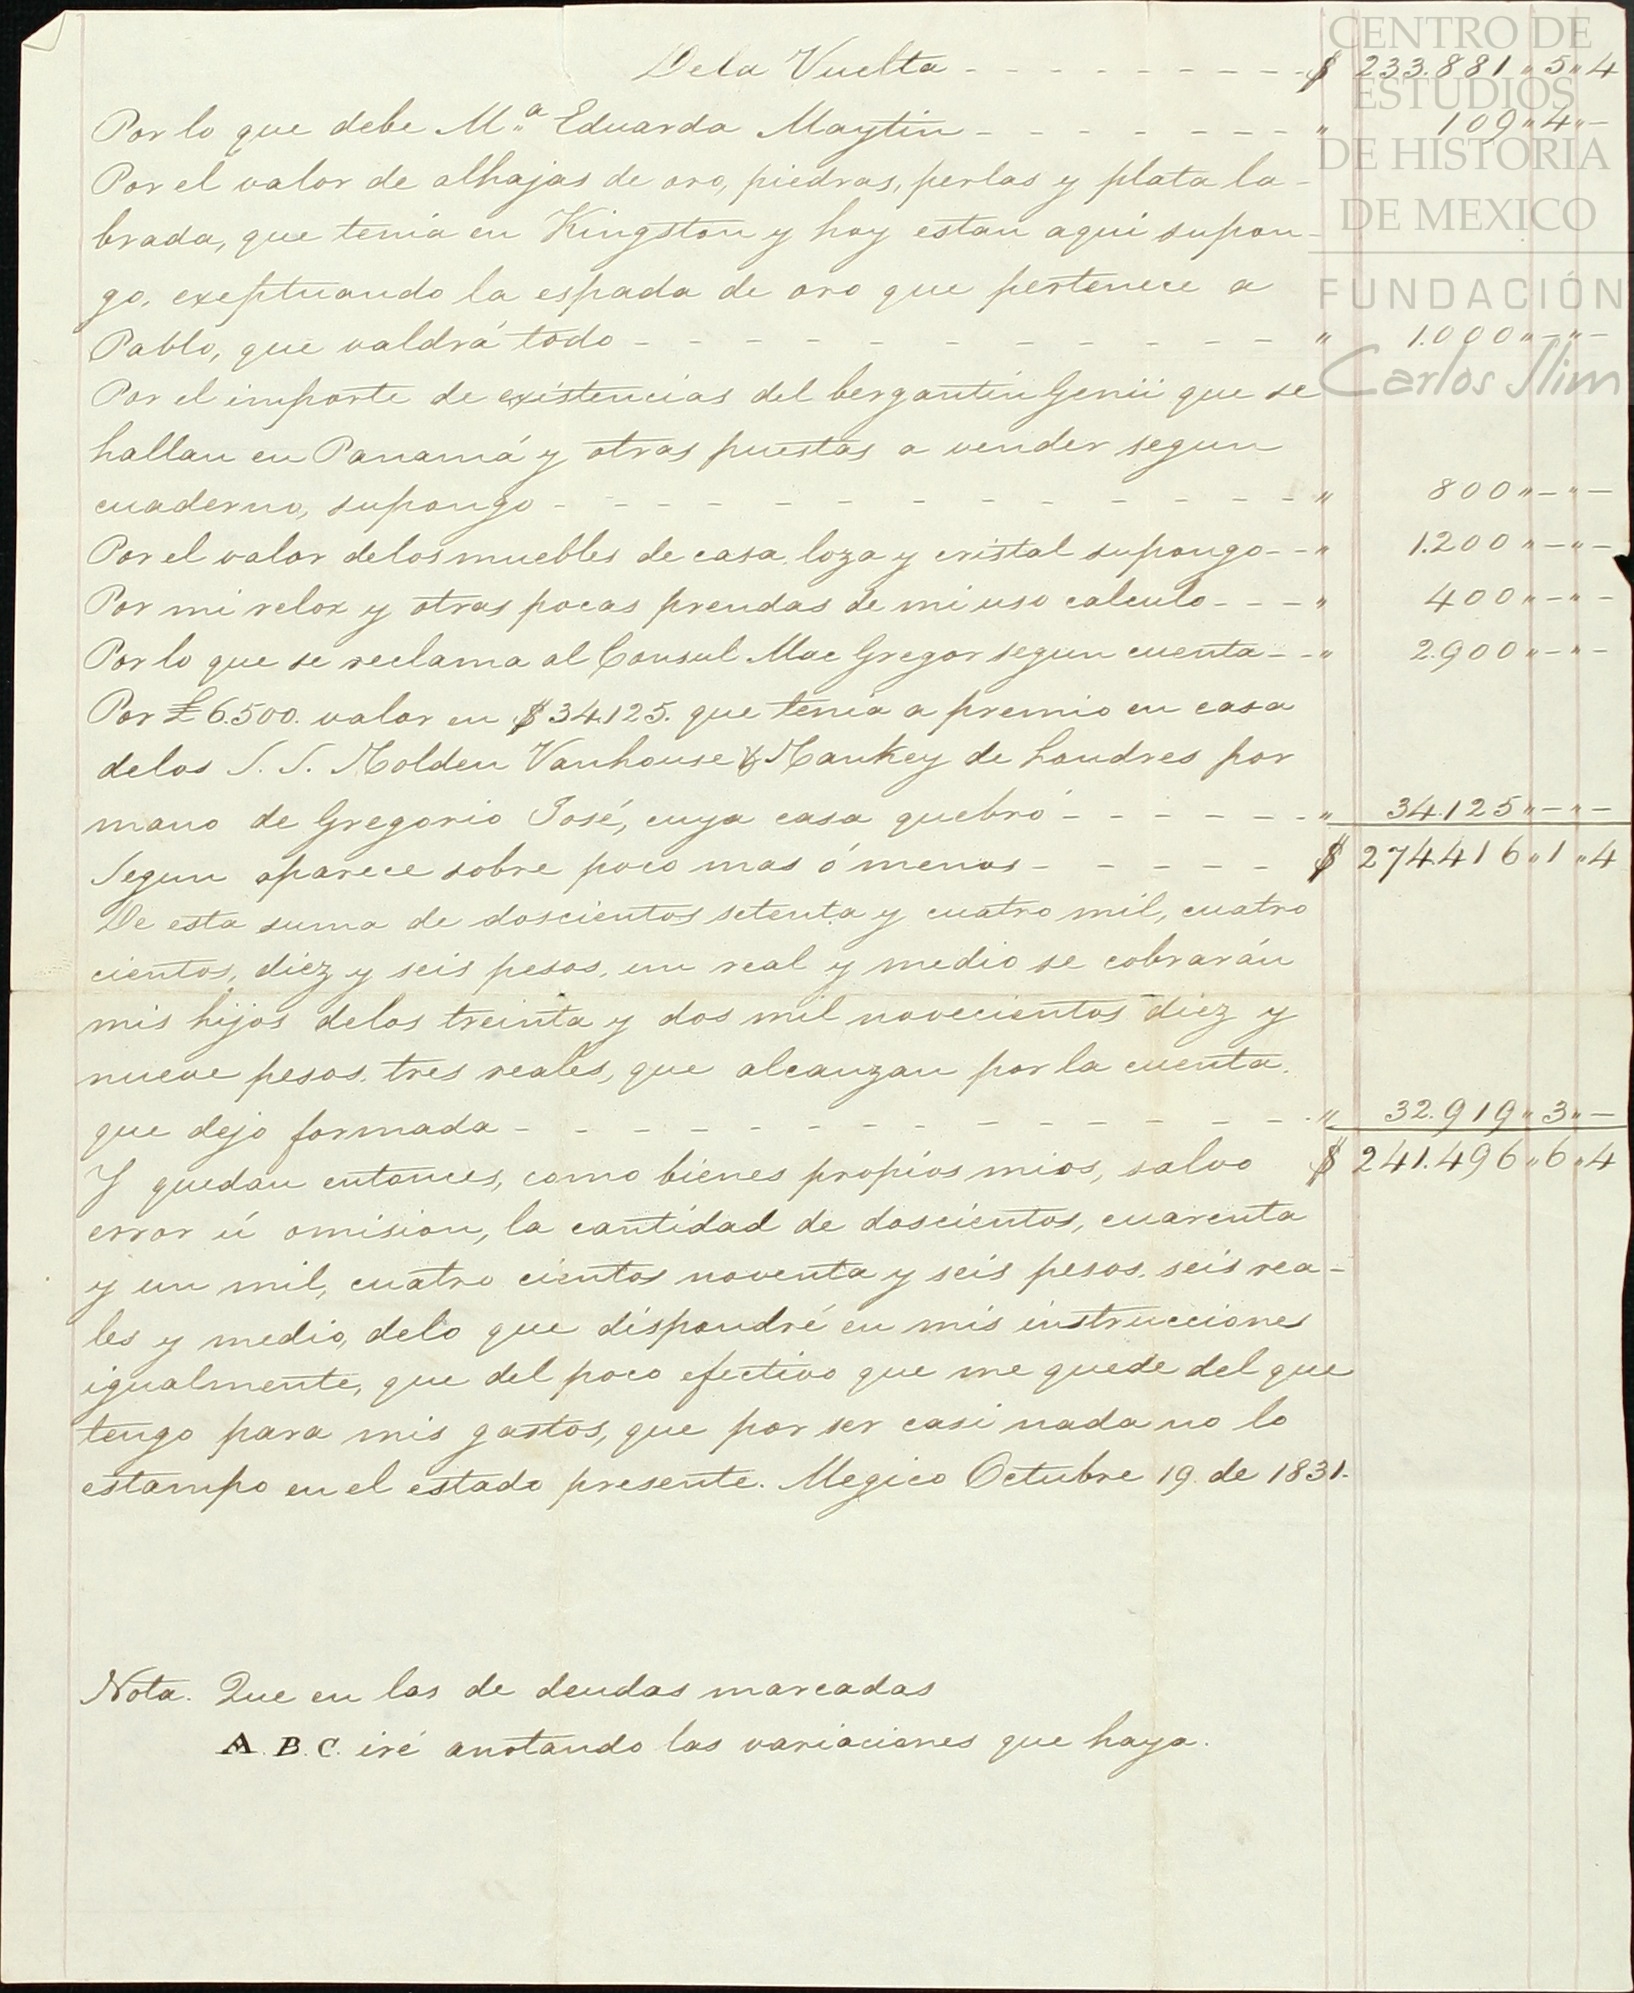 CENTRO DE
ESTUDIOS
DE HISTORIA
DE MEXICO
FUNDACIÓN
Carlos Slim
Dela Vuelta - - - - - - - - - $ 233.881 " 5 " 4
Por lo que debe M.ª Eduarda Maytin - - - - - - - " 109 " 4 " -
Por el valor de alhajas de oro, piedras, perlas y plata la-
brada, que tenia en Kingston y hoy estan aqui supon-
go, exeptuando la espada de oro que pertenece a
Pablo, que valdrá todo - - - - - - - - - - - - " 1.000 " - " -
Por el importe de existencias del bergantin Genii que se
hallan en Panamá y otras puestas a vender segun
cuaderno, supongo - - - - - - - - - - - - - " 800 " - " -
Por el valor delos muebles de casa, loza y cristal supongo - - " 1.200 " - " -
Por mi relox y otras pocas prendas de mi uso calculo - - - " 400 " - " -
Por lo que se reclama al Consul Mac Gregor segun cuenta - - " 2.900 " - " -
Por £6.500. valor en $34.125. que tenia a premio en casa
delos S. S. Holden Vanhouse & Hankey de Londres por
mano de Gregorio José, cuya casa quebró - - - - - - " 34.125 " - " -
Segun aparece sobre poco mas ó menos - - - - - $ 274.416 " 1 " 4
De esta suma de doscientos setenta y cuatro mil, cuatro
cientos, diez y seis pesos, un real y medio se cobrarán
mis hijos delos treinta y dos mil novecientos diez y
nueve pesos, tres reales, que alcanzan por la cuenta,
que dejo formada - - - - - - - - - - - - - " 32.919 " 3 " -
Y quedan entonces, como bienes propios mios, salvo $ 241.496 " 6 " 4
error ú omision, la cantidad de doscientos, cuarenta
y un mil, cuatro cientos noventa y seis pesos, seis rea-
les y medio, delo que dispondré en mis instrucciones
igualmente, que del poco efectivo que me quede del que
tengo para mis gastos, que por ser casi nada no lo
estampo en el estado presente. Megico Octubre 19. de 1831.
Nota. Que en las de deudas marcadas
A. B. C. iré anotando las variaciones que haya.